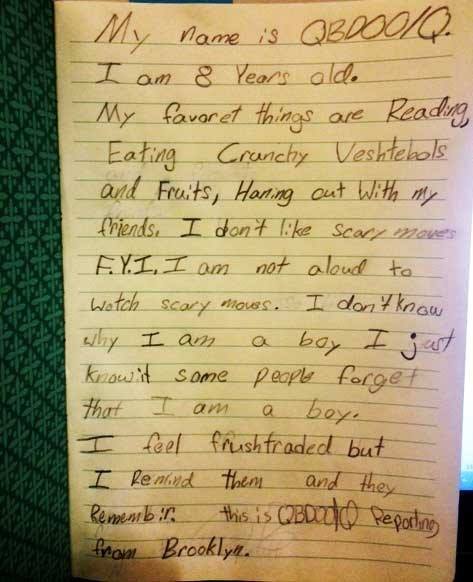 My name is QBDOO/Q.
I am 8 Years old.
My favoret things are Reading,
Eating Crunchy Veshtebols
and Fruits, Haning out With my
friends. I don't like scary moves
F.Y.I. I am not aloud to
Watch scary moves. I don't know
why I am a boy I just
know it some people forget
that I am a boy.
I feel frushtraded but
I Remind them and they
Remembir. this is QBDOO/Q Reporting
from Brooklyn.